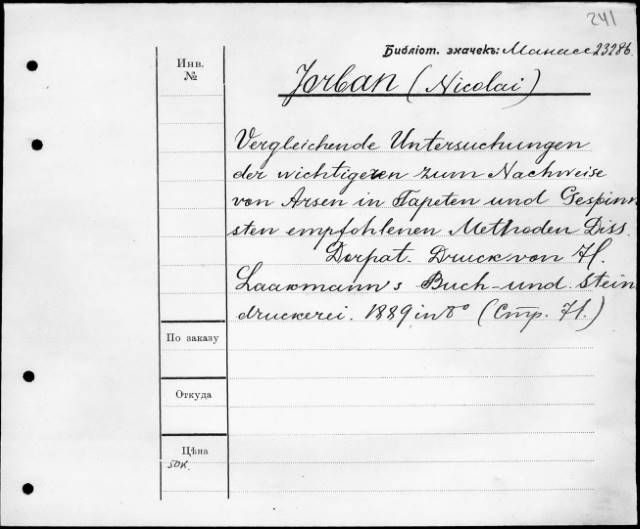 241
Библіот. значекъ: Манасс 23286.
Инв.
№
Jorban (Nicolai)
Vergleichende Untersuchungen
der wichtigeren zum Nachweise
von Arsen in Tapeten und Gespinn
sten empfohlenen Methoden Diss.
Dorpat. Druck von H.
Laakmann's Buch- und Stein
druckerei. 1889 in 8° (Стр. 71.)
По заказу
Откуда
Цѣна
50к.